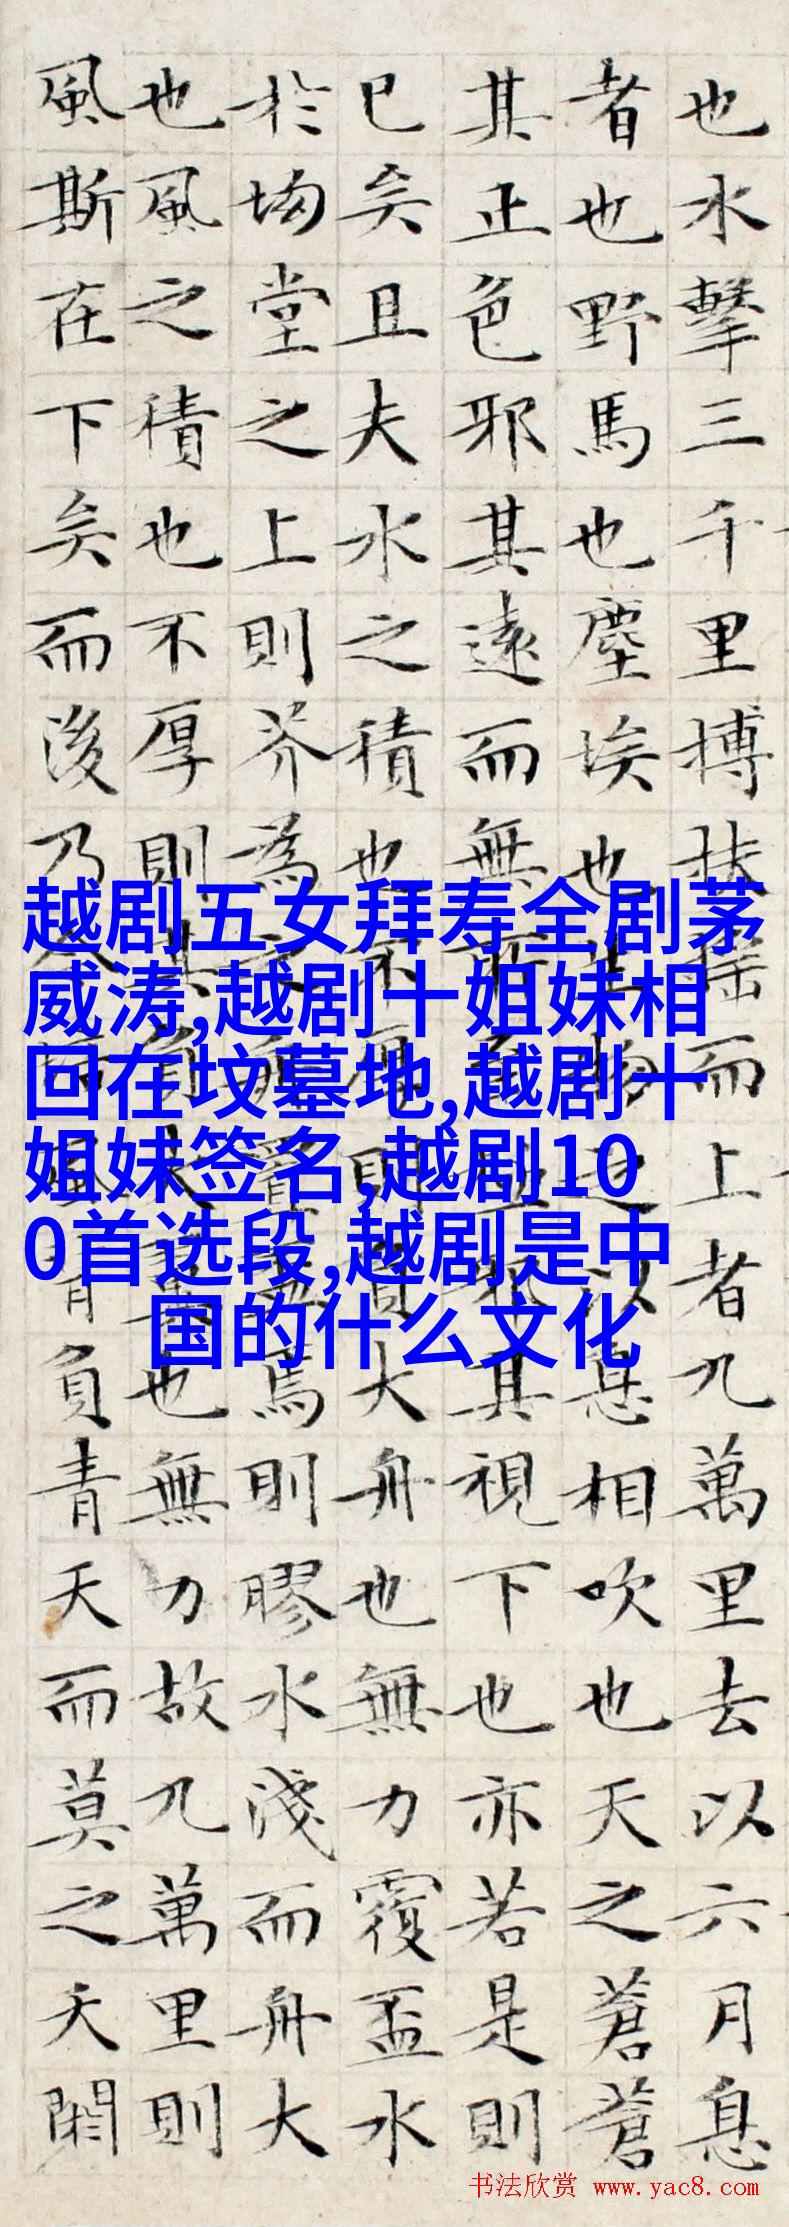 也水擊三千里搏扶摇而上者九萬里去以六月息
者也野馬也塵埃也生物之以息相吹也天之蒼蒼
其正色邪其遠而無所至極邪其視下也亦若是則
已矣且夫水之積也不厚則負大舟也無力覆盃水
於坳堂之上則芥為之舟置盃焉則膠水淺而舟大
也風之積也不厚則其負大翼也無力故九萬里則
風斯在下矣而後乃今培風背負青天而莫之夭閼
越剧五女拜寿全剧茅
威涛,越剧十姐妹相
回在坟墓地,越剧十
姐妹签名,越剧10
0首选段,越剧是中
国的什么文化
书法欣赏 www.yac8.com